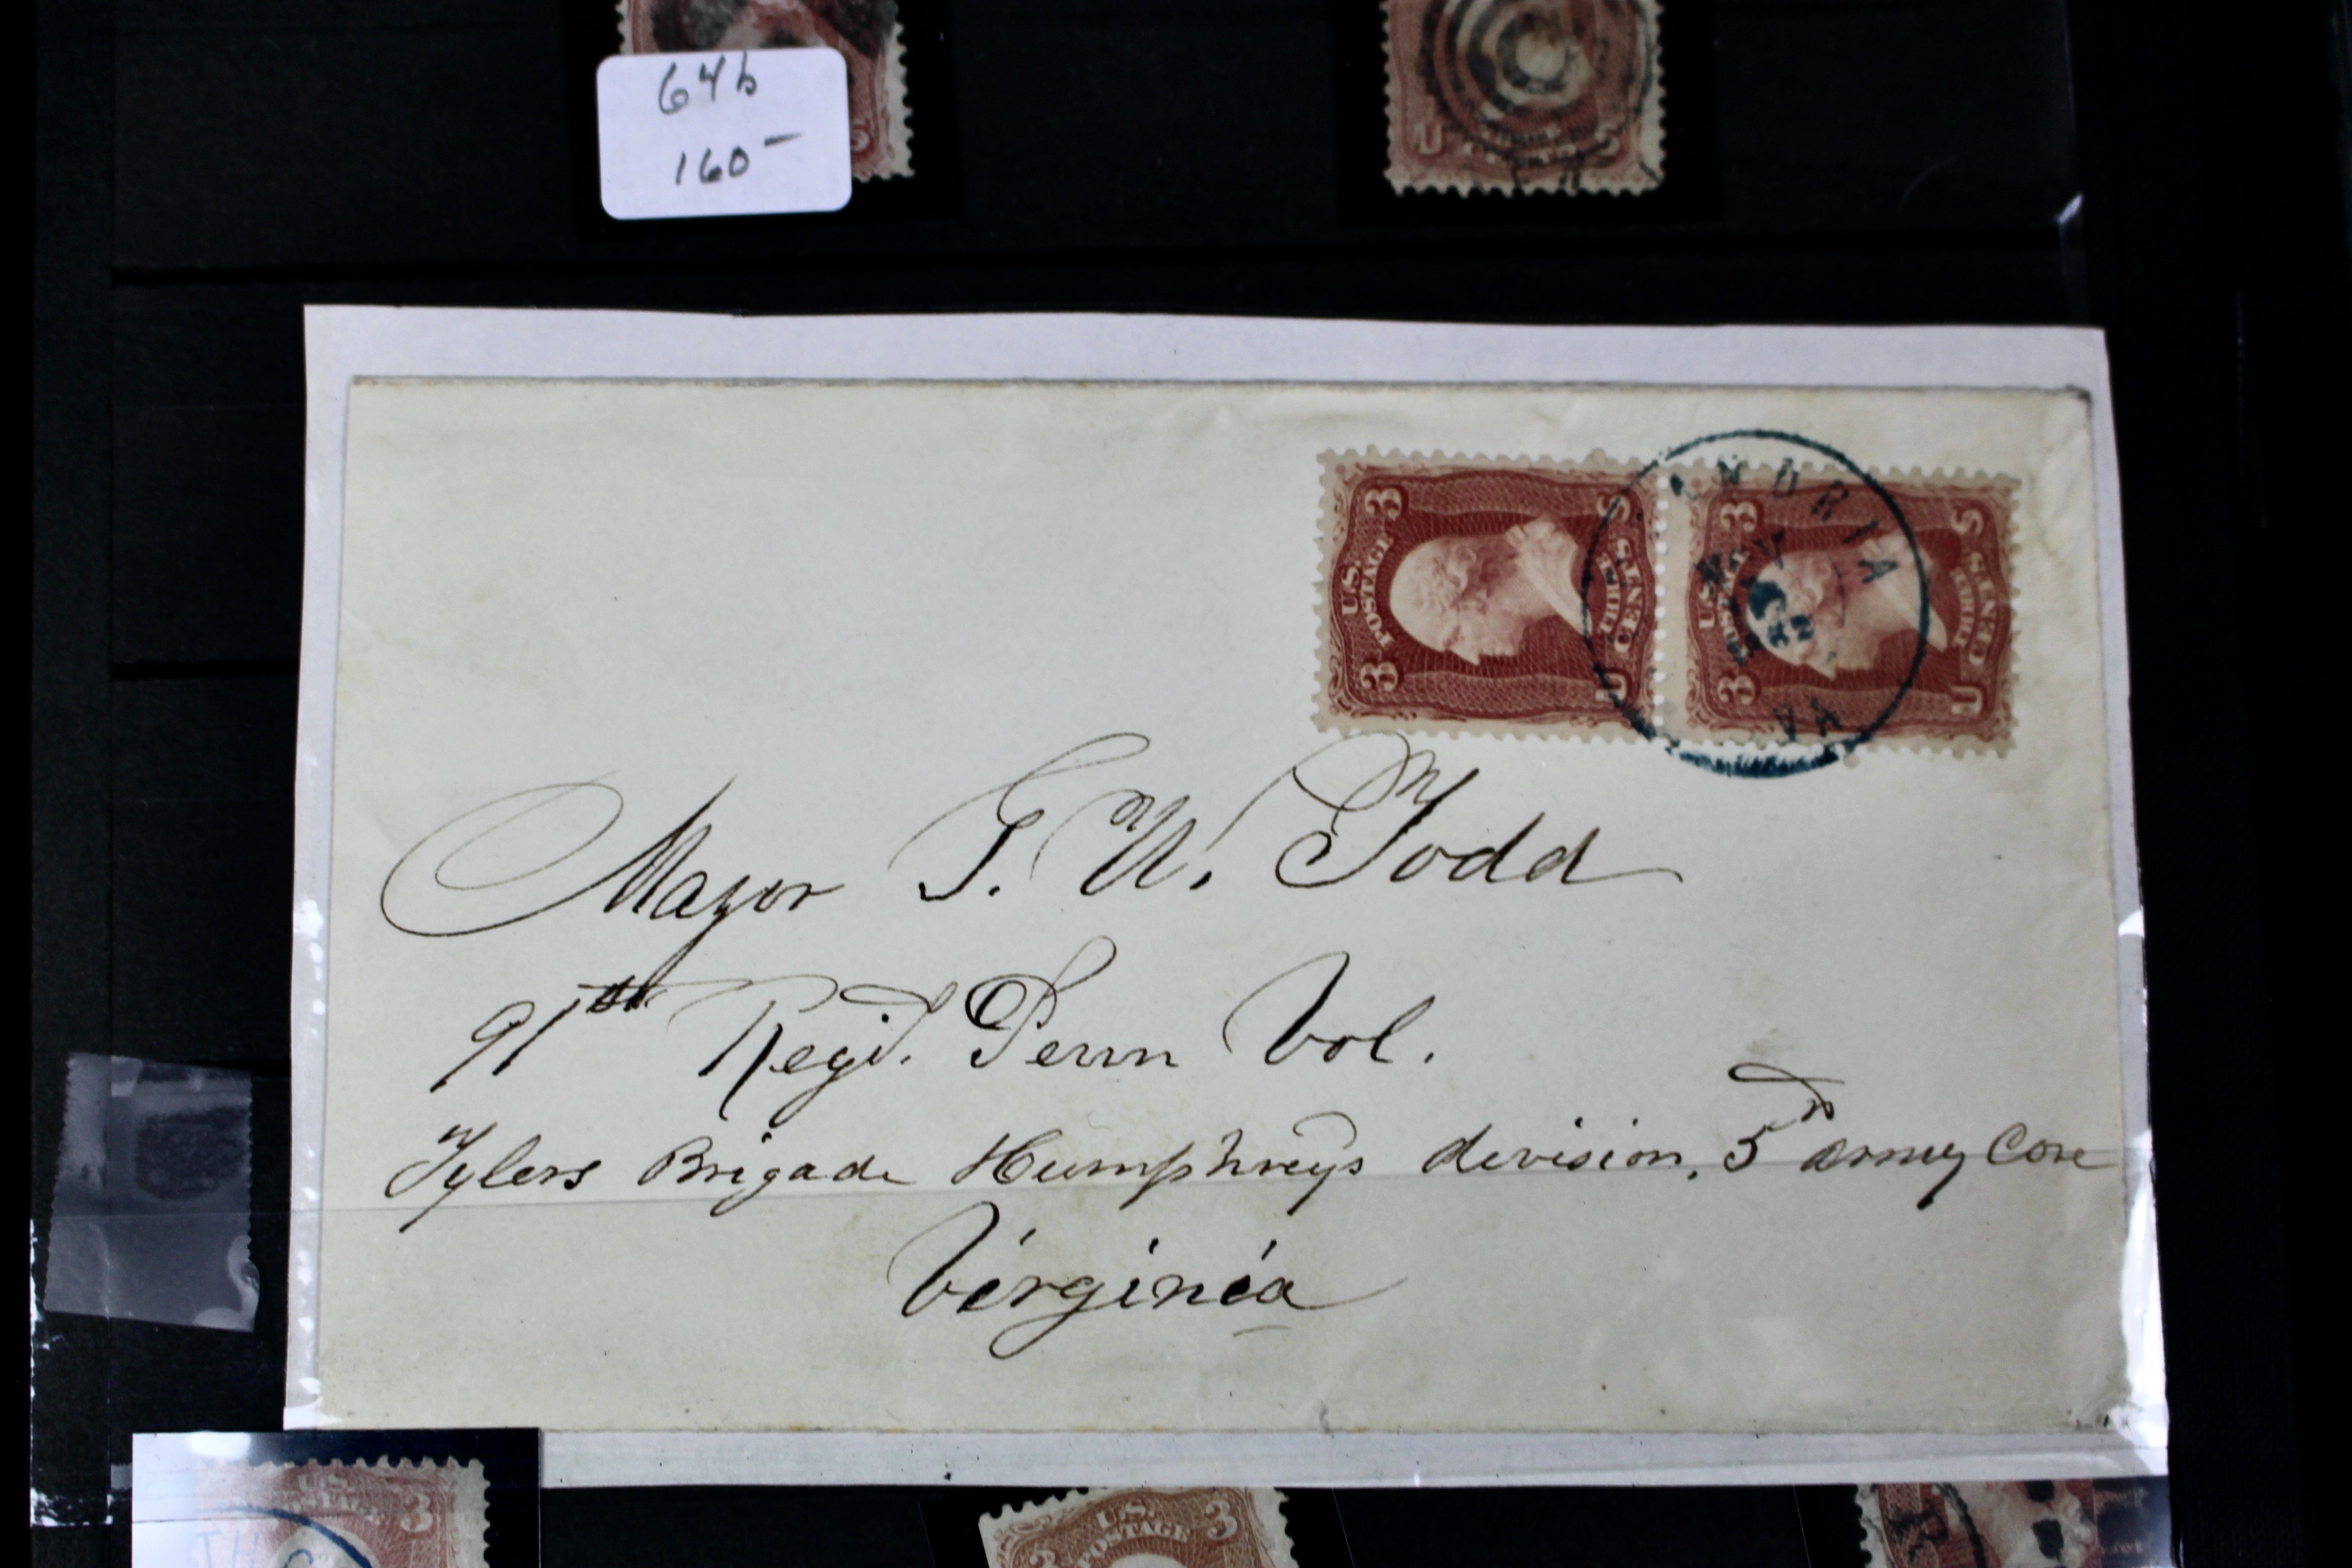 64b
160-
U S
3 S
U.S. POSTAGE
3 U
THREE CENTS
3 S
U.S. POSTAGE
3 U
THREE CENTS
NDRIA
VA
Major T. W. Todd
91st Regt. Penn Vol.
Tylers Brigade Humphreys division, 5th army Core
Virginia
U.S. POSTAGE 3
U.S. POSTAGE 3